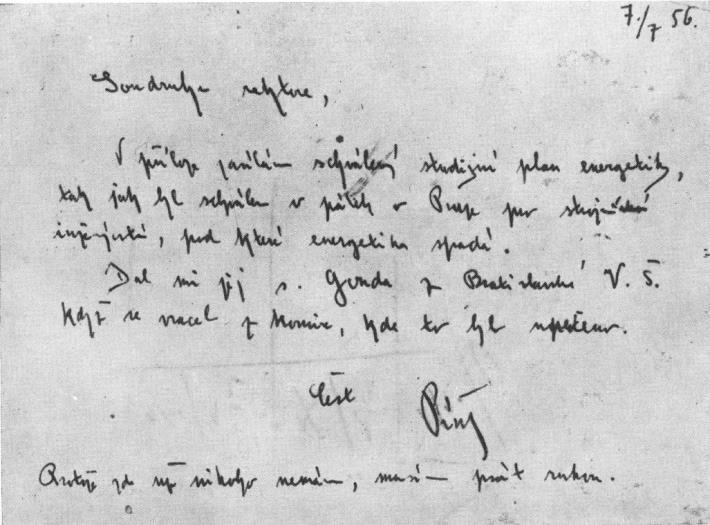 7./7 56.
Soudruhu rektore,
V příloze zasílám schválený studijní plan energetiky,
tak jak byl schválen v pátek v Praze pro strojní
inženýrství, pod které energetika spadá.
Dal mi jej s. Gonda z Bratislavské V. Š.
když se vracel z komise, kde to bylo
Čest
Protože zde už nikoho nemám, musím psát rukou.